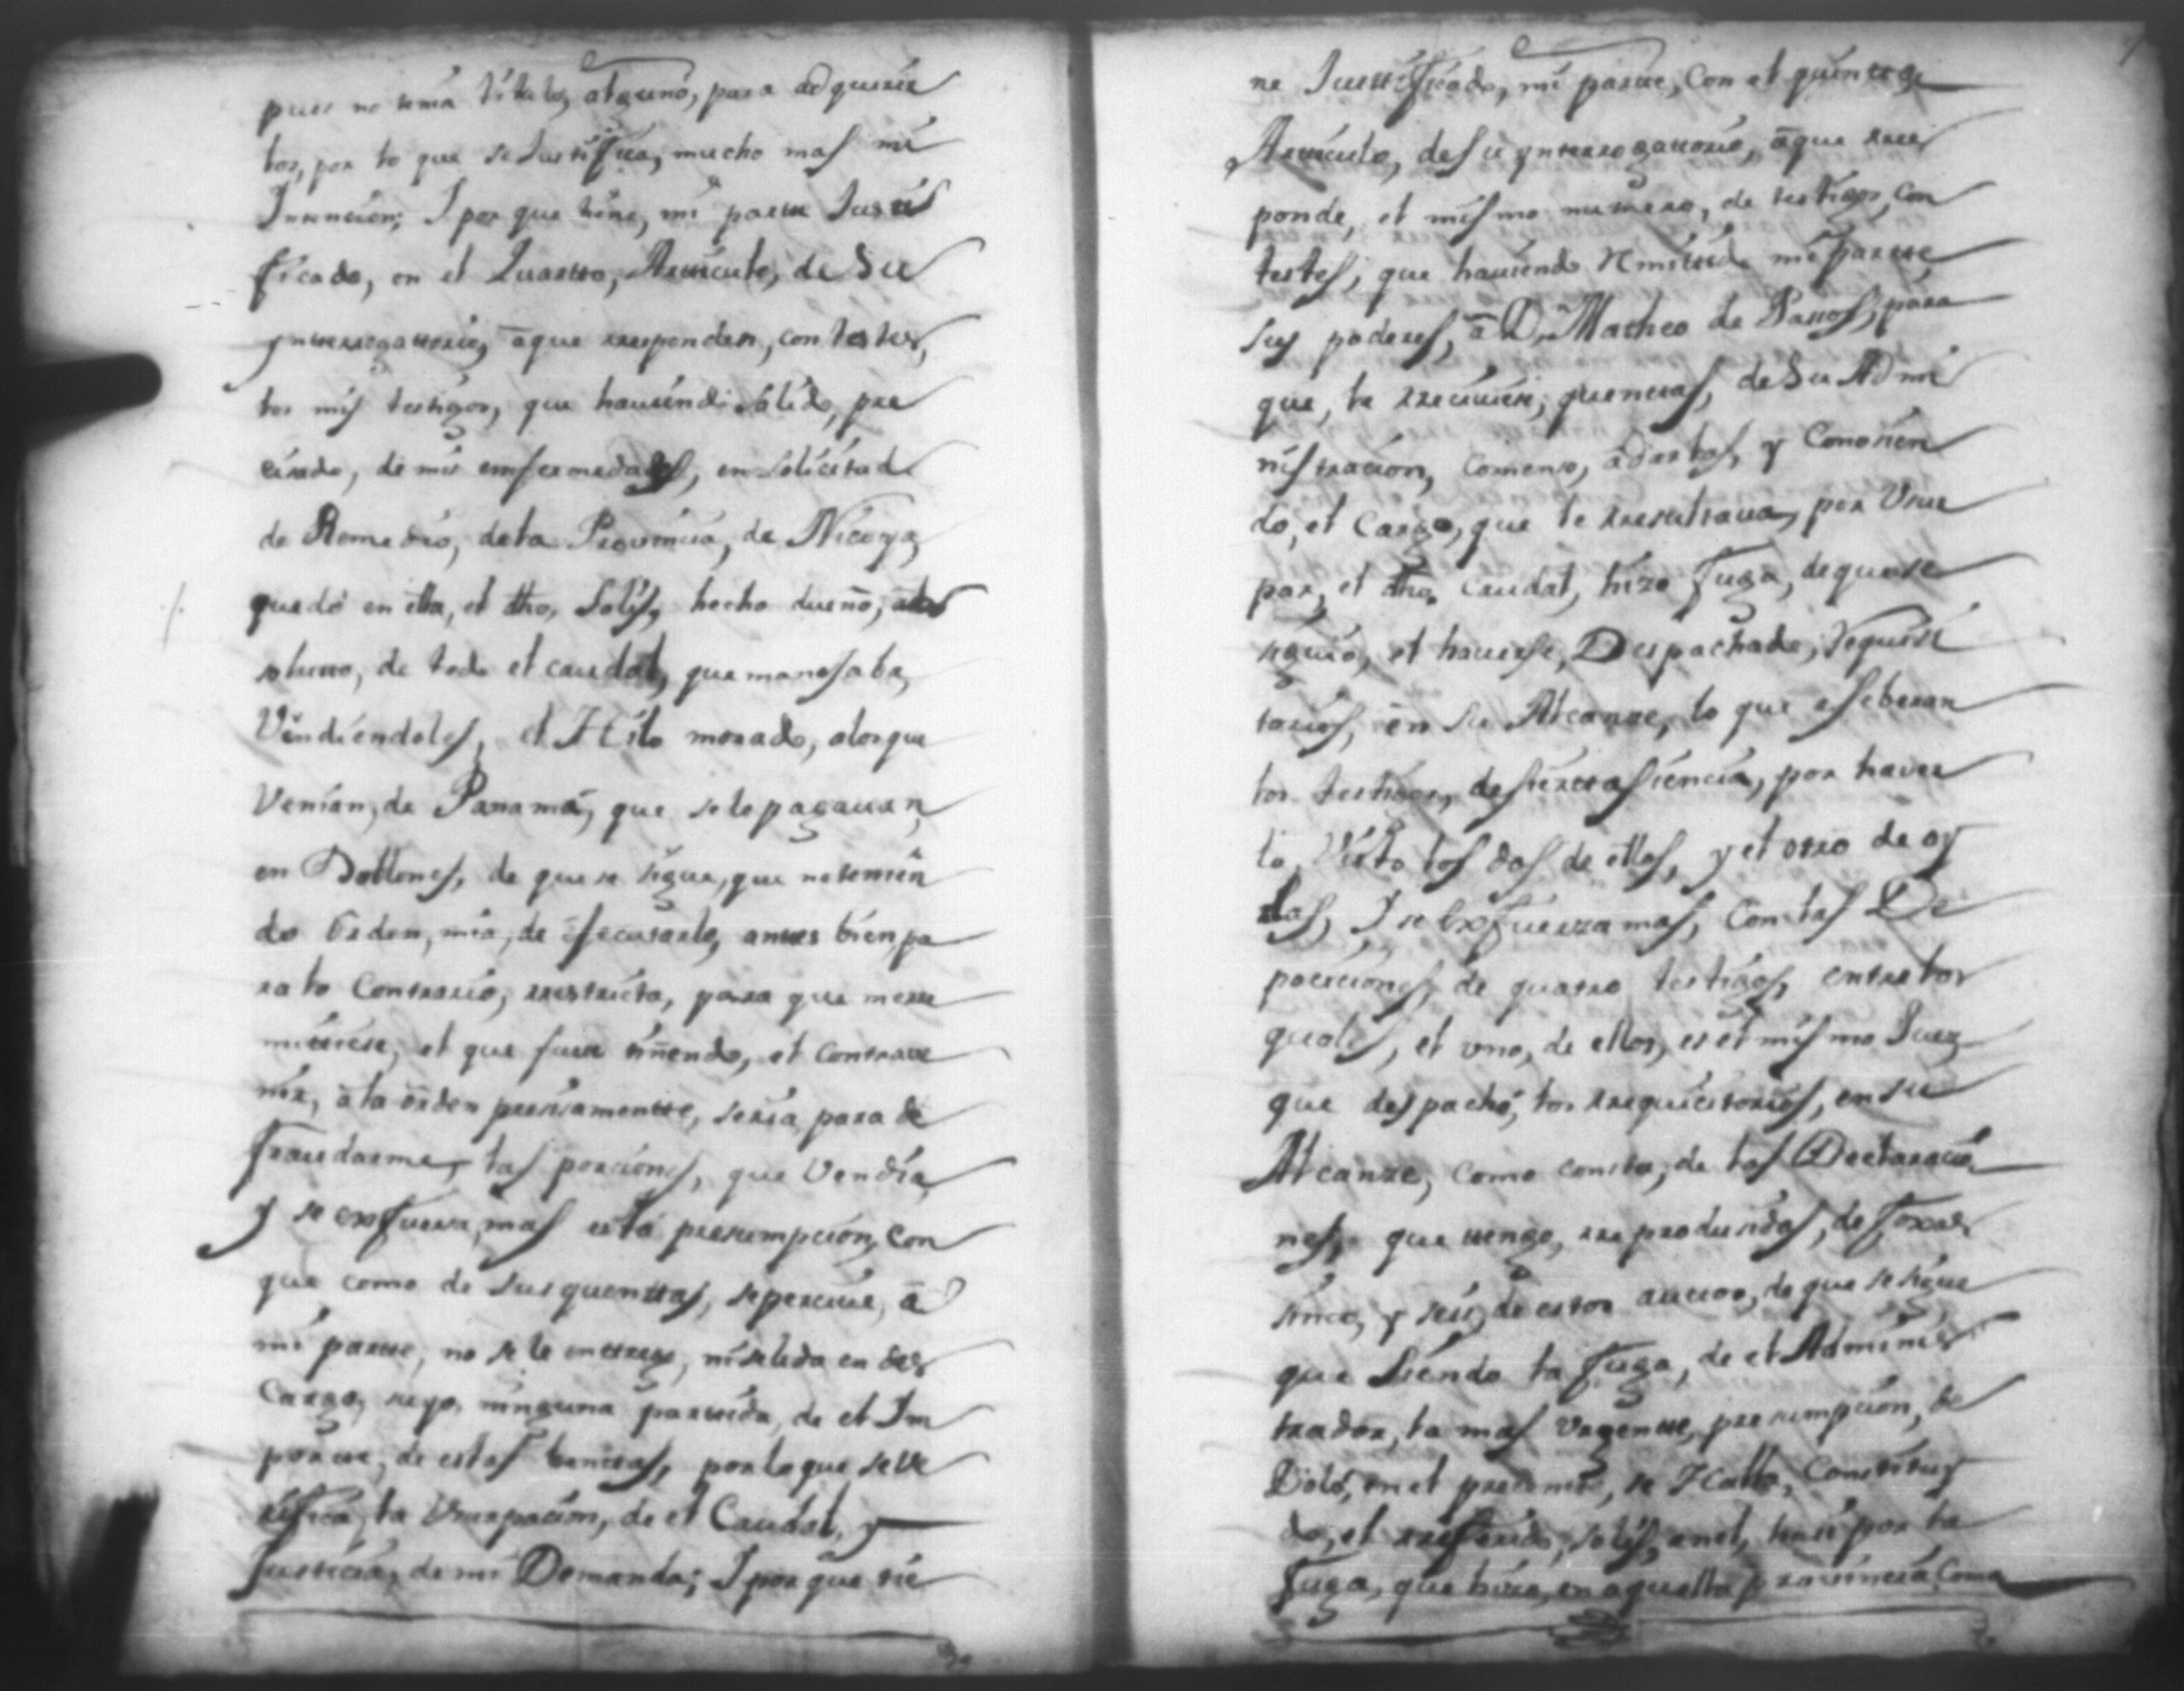 pues no tenia titulo, alguno, para adquerir
los, por lo que se Justifica, mucho mas mi
Intencion; I por que tiene, mi partte Justi
ficado, en el Quartto, Artticulo, de Su
ynterrogattorio, āque rresponden, contestes,
los mis testigos, que haviendo salido, pre
cisado, de mis emfermedades, en solicitud
de Remedio, dela Provincia, de Nicoya,
quedó en ella, el dho, Solis, hecho dueño, ab
solutto, de todo el caudal, que manejaba,
Vendiendoles, el Hilo morado, alos que
Venian, de Panamá, que selo pagavan,
en Doblones, de que se sigue, que no tenien
do Orden, mia, de ejecutarlo, antes bien pa
ra lo Contrario, rrestricta, para que me rre
mitiese, el que fuese tiñendo, el Contrave
nir, āla orden presisamentte, seria para de
fraudarme, las porciones, que Vendia,
y se exfuerza, mas esta presumpcion, con
que como de sus quenttas, sepercive, ā
mi partte, no se le enttrego, niseleda en des
Cargo, suyo, ninguna parttida, de el Im
portte, de estas benttas, por loque seve
rifica, la Usurpacion, de el Caudal, y
Justicia, de mi Demanda; I por que tie
ne Justtificado, mi partte, Con el quintto
Artticulo, de su ynterrogattorio, āque rres
ponde, el mismo numero, de testigos, con
testes, que haviendo Remitido mi partte
sus poderes, ā Dn. Matheo de Parros, para
que, le rreciviese, quenttas, de Su Admi
nistracion, Comenso, ā darlas, y Conosien
do, el Cargo, que le rresultava, por Usur
par, el dho. Caudal, hizo fuga, de que se
siguio, el haverse, Despachado, Requisi
torios, en su Alcanze, lo que aseberan
los testigos, de siertta siencia, por haver
lo, Visto los dos de ellos, y el otro de oy
das, I se exfuerza mas, Con las De
posiciones, de quatro testigos, entre los
quales, el uno, de ellos, es el mismo Juez
que despachó, los rrequicitorios, en su
Alcanze, como consta, de las Declaracio
nes, que tengo, rreproducidas, de foxas
sinco, y seis, de estos auttos, de que se sigue
que Siendo la fuga, de el Adminis
trador, la mas Urgentte, presumpcion, de
Dolo, en el se Halla, Constituy
do, el rreferido, Solis, en el, trasi por la
fuga, que hizo, en aquella provincia, Como